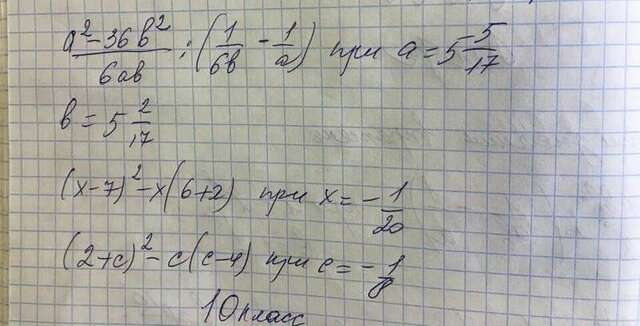 (a² - 36b²)/(6ab) : (1/(6b) - 1/a) при a = 5 5/17
b = 5 2/17
(x - 7)² - x(6 + 2) при x = - 1/20
(2 + c)² - c(c - 4) при c = - 1/8
10 класс